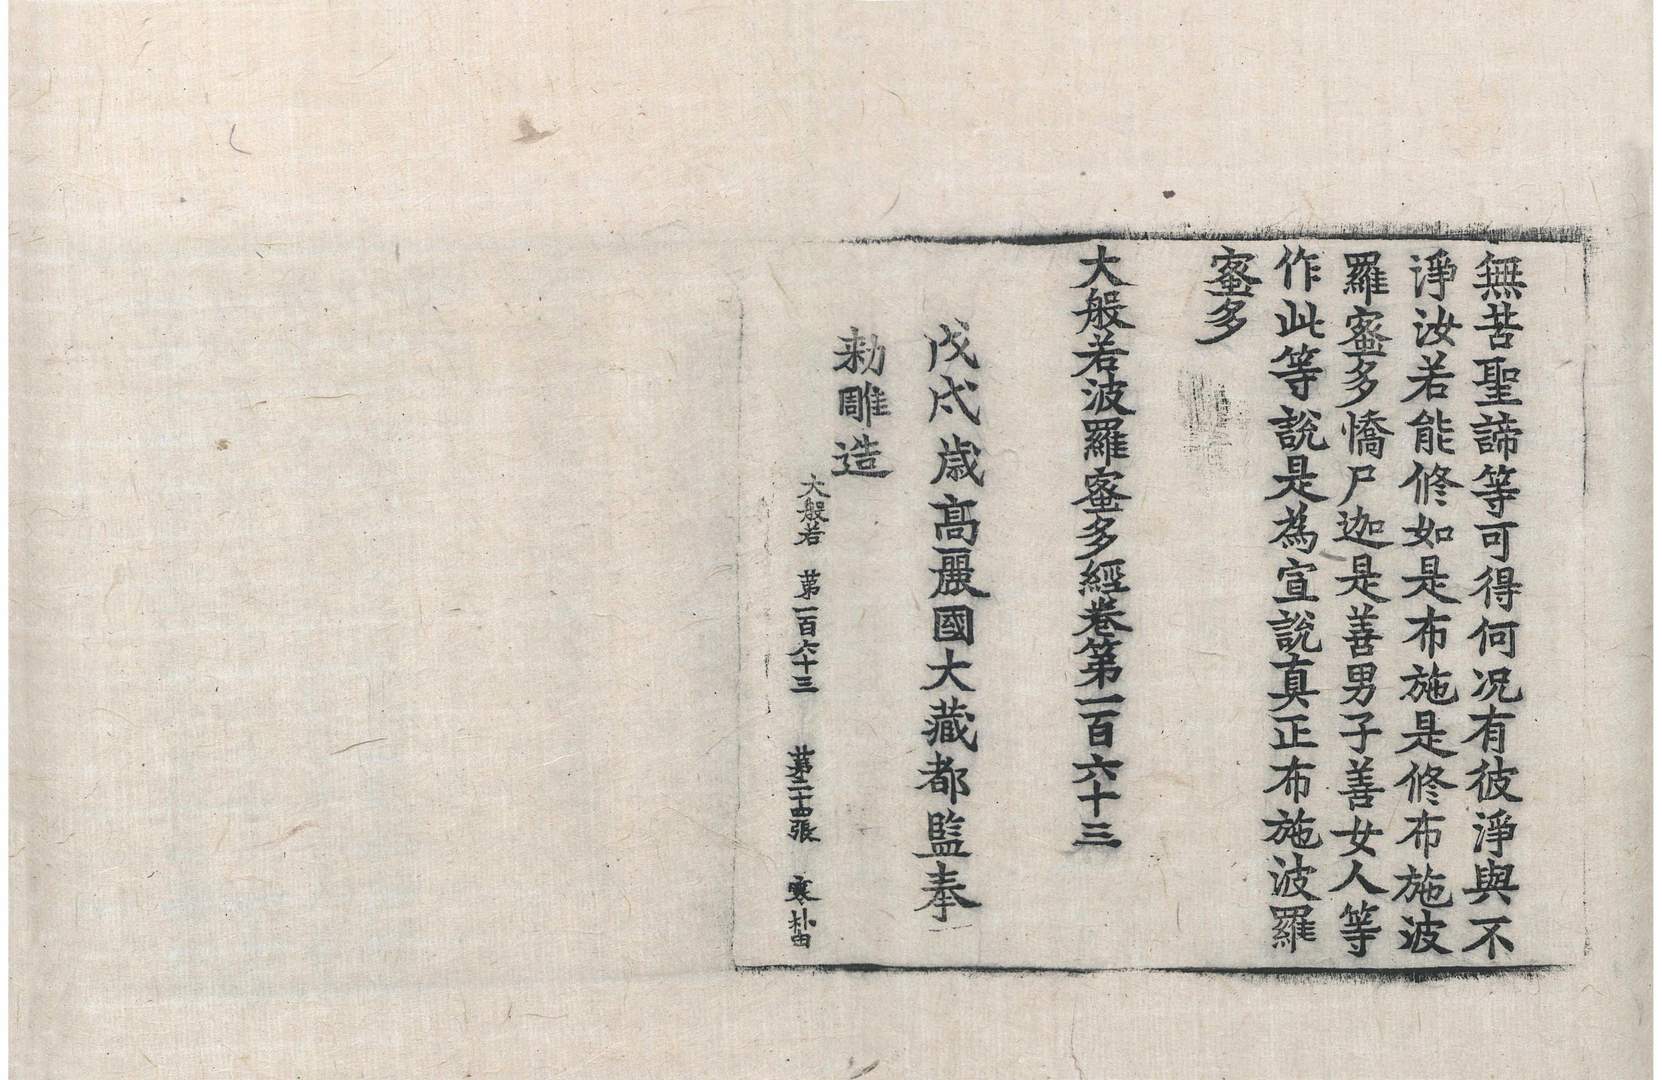 無苦聖諦等可得何况有彼淨與不
淨汝若能修如是布施是修布施波
羅蜜多憍尸迦是善男子善女人等
作此等說是為宣說真正布施波羅
蜜多
大般若波羅蜜多經卷第一百六十三
戊戌歲高麗國大藏都監奉
勅雕造
大般若 第一百六十三 第二十四張 寒